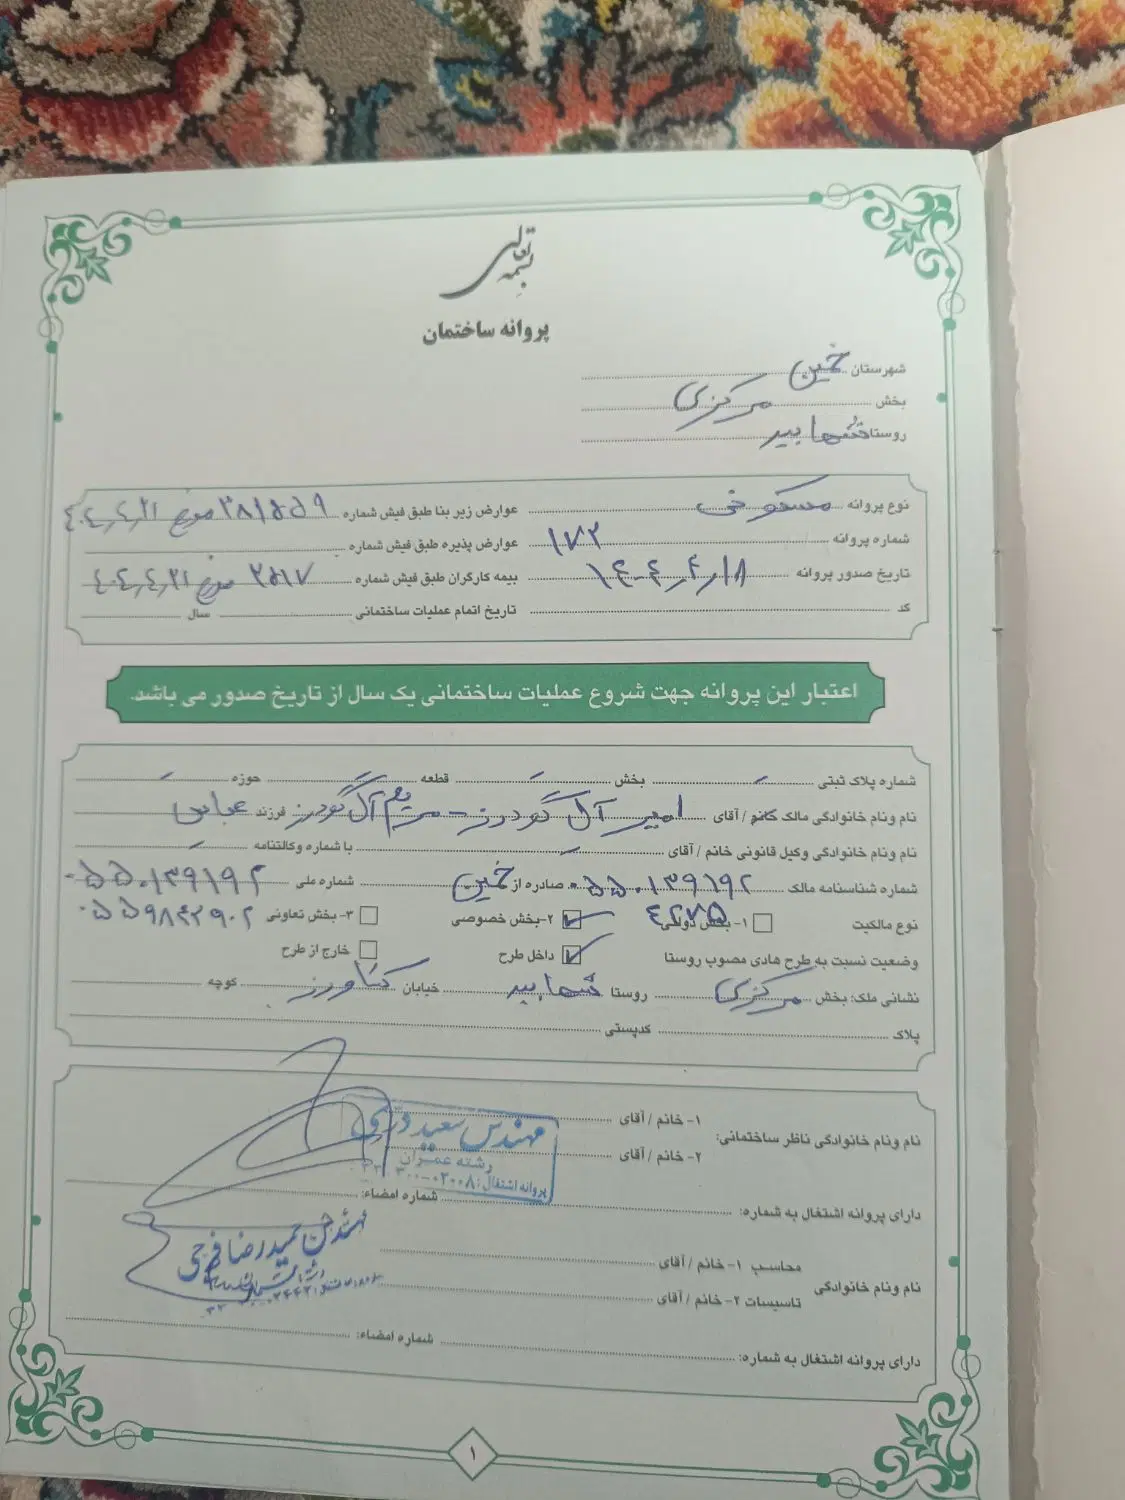 بسمه تعالی
پروانه ساختمان
شهرستان خمین
بخش مرکزی
روستا شهابیه
نوع پروانه مسکونی عوارض زیر بنا طبق فیش شماره
شماره پروانه ۱۷۲ عوارض پذیره طبق فیش شماره
تاریخ صدور پروانه ۱۴۰۴٫۴٫۱۸ بیمه کارگران طبق فیش شماره ۲۵۱۷ مورخ ۴۰۴٫۴٫۲۱
کد تاریخ اتمام عملیات ساختمانی سال
اعتبار این پروانه جهت شروع عملیات ساختمانی یک سال از تاریخ صدور می باشد.
شماره پلاک ثبتی بخش قطعه حوزه
نام ونام خانوادگی مالک خانم / آقای امیر آل گودرز - مریم آل گودرز فرزند عباس
نام ونام خانوادگی وکیل قانونی خانم / آقای با شماره وکالتنامه
شماره شناسنامه مالک ۰۵۵۰۱۳۹۱۹۲ صادره از خمین شماره ملی ۰۵۵۰۱۳۹۱۹۲
نوع مالکیت ۱- بخش دولتی ۲-بخش خصوصی ۳- بخش تعاونی
وضعیت نسبت به طرح هادی مصوب روستا داخل طرح خارج از طرح
نشانی ملک: بخش مرکزی روستا شهابیه خیابان کشاورز کوچه
پلاک کدپستی
نام ونام خانوادگی ناظر ساختمانی:
۱- خانم / آقای
۲- خانم / آقای
مهندس سعید
رشته عمران
پروانه اشتغال:
دارای پروانه اشتغال به شماره: شماره امضاء:
مهندس حمیدرضا فرجی
نام ونام خانوادگی
محاسب ۱- خانم / آقای
تاسیسات ۲- خانم / آقای
دارای پروانه اشتغال به شماره: شماره امضاء:
۱